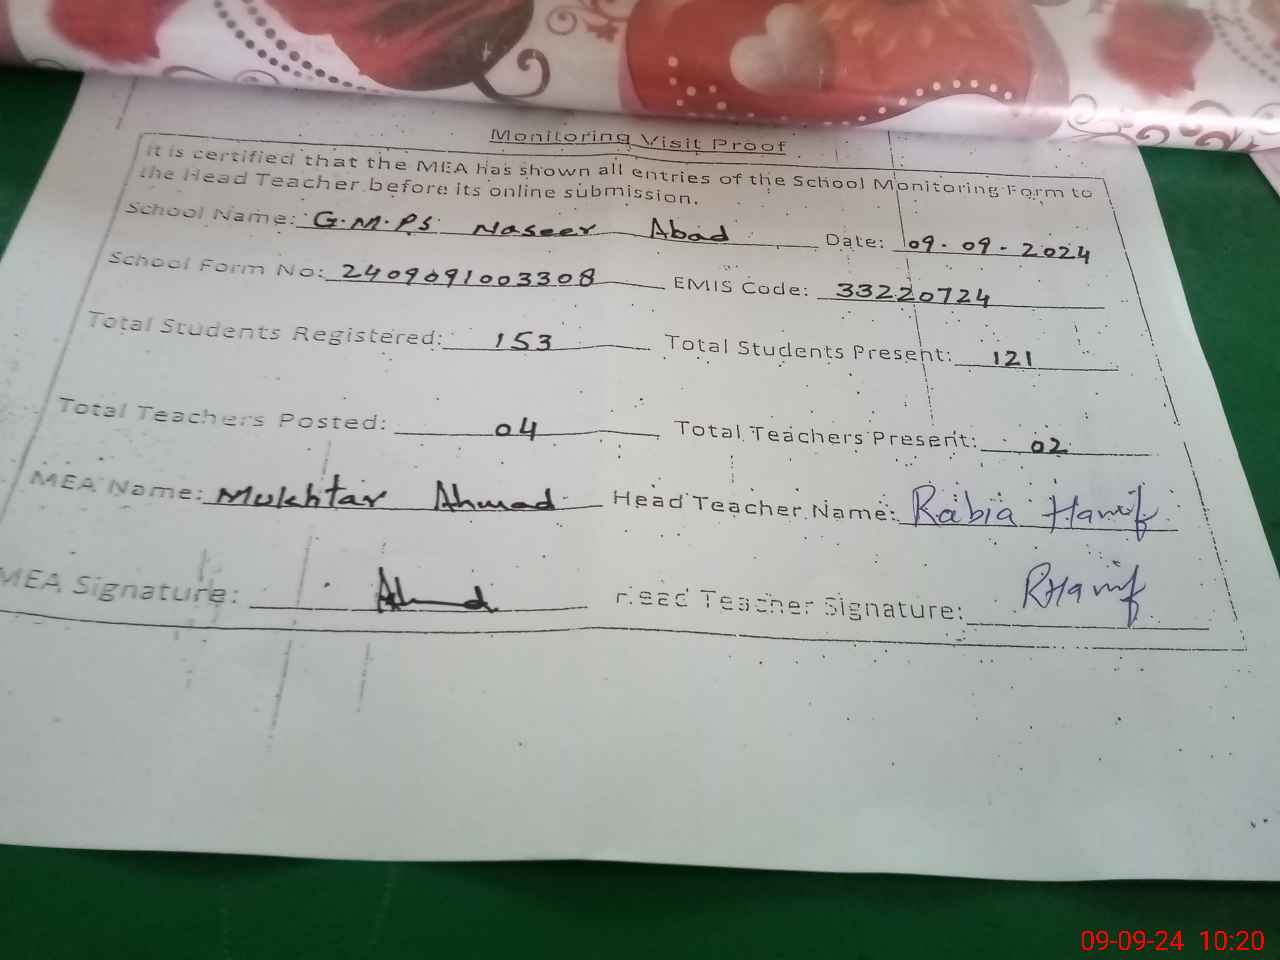 Monitoring Visit Proof
It is certified that the MEA has shown all entries of the School Monitoring Form to
the Head Teacher before its online submission.
School Name: G.M.P.S Naseer Abad Date: 09.09.2024
School Form No: 2409091003308 EMIS Code: 33220724
Total Students Registered: 153 Total Students Present: 121
Total Teachers Posted: 04 Total Teachers Present: 02
MEA Name: Mukhtar Ahmad Head Teacher Name: Rabia Hanif
MEA Signature: Ahmad Head Teacher Signature: RHanif
09-09-24 10:20